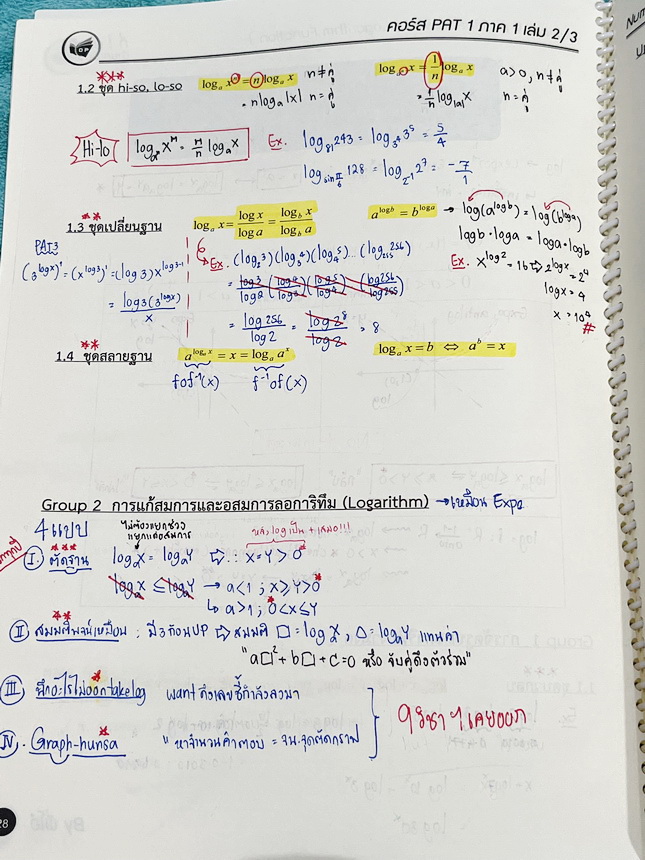 คอร์ส PAT 1 ภาค 1 เล่ม 2/3
1.2 ชุด hi-so, lo-so
logₐ xⁿ = n logₐ x n ≠ คู่
= n logₐ |x| n = คู่
log_{aⁿ} x = 1/n logₐ x a > 0, n ≠ คู่
= 1/n log_{|a|} x n = คู่
Hi-lo
log_{aⁿ} x^m = m/n logₐ x
Ex. log₈₁ 243 = log_{3⁴} 3⁵ = 5/4
log_{sin π/6} 128 = log_{2⁻¹} 2⁷ = -7/1
1.3 ชุดเปลี่ยนฐาน
logₐ x = log x / log a = log_b x / log_b a
a^{log b} = b^{log a} → log(a^{log b}) = log(b^{log a})
log b · log a = log a · log b
PAT3
(3^{log x})' = (x^{log 3})' = (log 3) x^{log 3 - 1}
= log 3 (3^{log x}) / x
Ex. (log₂ 3)(log₃ 4)(log₄ 5)...(log₂₅₅ 256)
= (log 3 / log 2)(log 4 / log 3)(log 5 / log 4) ... (log 256 / log 255)
= log 256 / log 2 = log 2⁸ / log 2 = 8
Ex. x^{log 2} = 16 ⇨ 2^{log x} = 2⁴
log x = 4
x = 10⁴
#
1.4 ชุดสลายฐาน
a^{logₐ x} = x = logₐ aˣ
logₐ x = b ⇔ aᵇ = x
fof⁻¹(x) f⁻¹of(x)
Group 2 การแก้สมการและอสมการลอการิทึม (Logarithm) → เหมือน Expo
4 แบบ
I. ตัดฐาน logₐ x = logₐ y ⇨ ∴ x = y > 0
logₐ x ≤ logₐ y → a < 1 ; x ≥ y > 0
↳ a > 1 ; 0 < x ≤ y
II สมมติพจน์เหมือน ; มี 3 ก้อน UP ⇨ สมมติ □ = logₐ x , △ = logₐ y แทนค่า
"a□² + b□ + c = 0 หรือ จับคู่ดึงตัวร่วม"
III นึกอะไรไม่ออก take log want ดึงเลขชี้กำลังลงมา
IV. Graph-หรรษา " หาจำนวนคำตอบ = จน. จุดตัดกราฟ
28